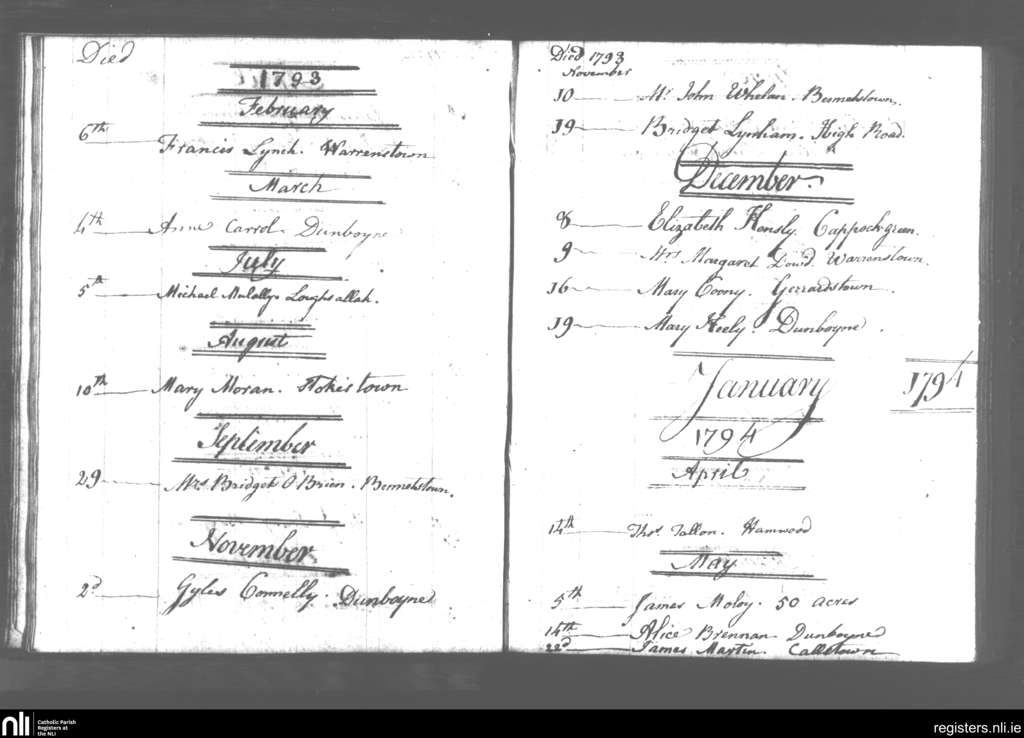 Died
1793
February
6th Francis Lynch. Warrenstown
March
4th Anne Carrol. Dunboyne
July
5th Michael Mulally. Loughsallah.
August
10th Mary Moran. Stokestown
September
29 Mrs Bridget O'Brien. Bennetstown.
November
2d Gyles Connelly. Dunboyne
Died 1793
November
10 Mr John Whelan. Bennetstown.
19 Bridget Lynham. High Road.
December.
8 Elizabeth Hensly. Cappockgreen.
9 Mrs Margaret Dowd. Warrenstown.
16 Mary Coony. Gerrardstown.
19 Mary Keely. Dunboyne.
January 1794
1794
April
14th Thos. Tallon. Hamwood
May
5th James Moloy. 50 acres
14th Alice Brennan Dunboyne
22d James Martin.
nli Catholic Parish
Registers at
the NLI
registers.nli.ie